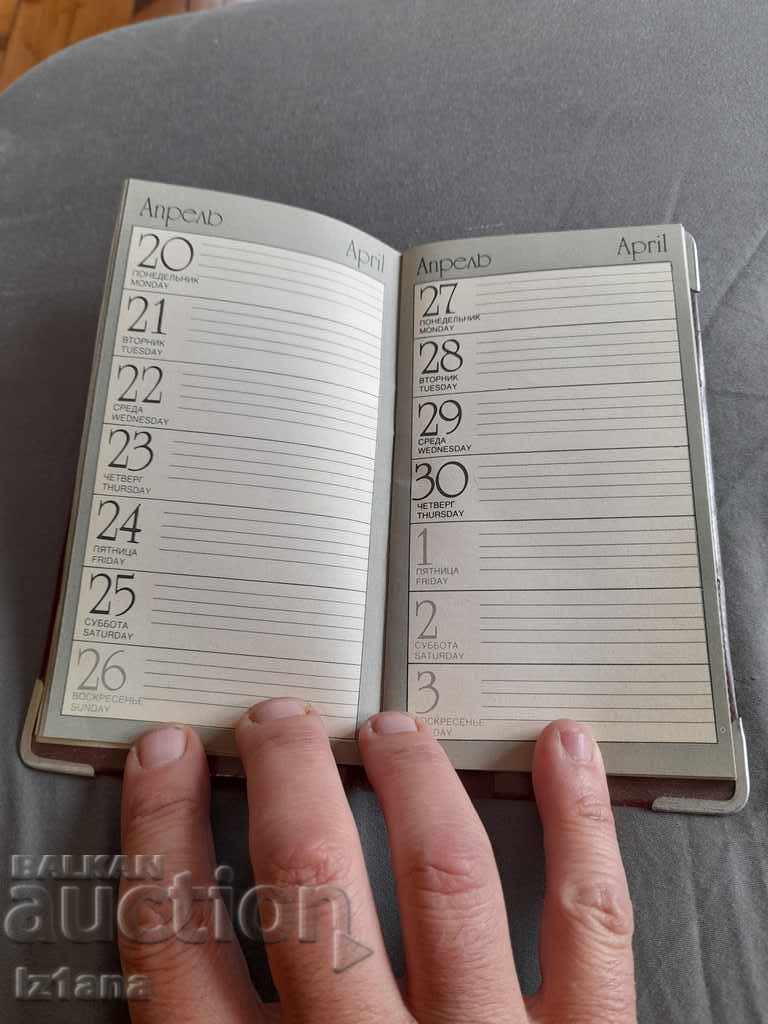 Апрель
April
20
ПОНЕДЕЛЬНИК
MONDAY
21
ВТОРНИК
TUESDAY
22
СРЕДА
WEDNESDAY
23
ЧЕТВЕРГ
THURSDAY
24
ПЯТНИЦА
FRIDAY
25
СУББОТА
SATURDAY
26
ВОСКРЕСЕНЬЕ
SUNDAY
Апрель
April
27
ПОНЕДЕЛЬНИК
MONDAY
28
ВТОРНИК
TUESDAY
29
СРЕДА
WEDNESDAY
30
ЧЕТВЕРГ
THURSDAY
1
ПЯТНИЦА
FRIDAY
2
СУББОТА
SATURDAY
3
ВОСКРЕСЕНЬЕ
BALKAN
auction
Iz1ana